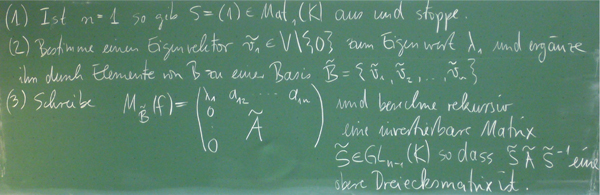 (1) Ist n=1 so gib S=(1) ∈ Mat₁(K) aus und stoppe.
(2) Bestimme einen Eigenvektor ṽ₁ ∈ V\{0} zum Eigenwert λ₁ und ergänze
ihn durch Elemente von B zu einer Basis B̃ = {ṽ₁, ṽ₂, ..., ṽₙ}
(3) Schreibe M_B̃(f) = ( λ₁ a₁₂ ... a₁ₙ
0
⋮ Ã
0 )
und berechne rekursiv
eine invertierbare Matrix
S̃ ∈ GLₙ₋₁(K) so dass S̃ Ã S̃⁻¹ eine
obere Dreiecksmatrix ist.